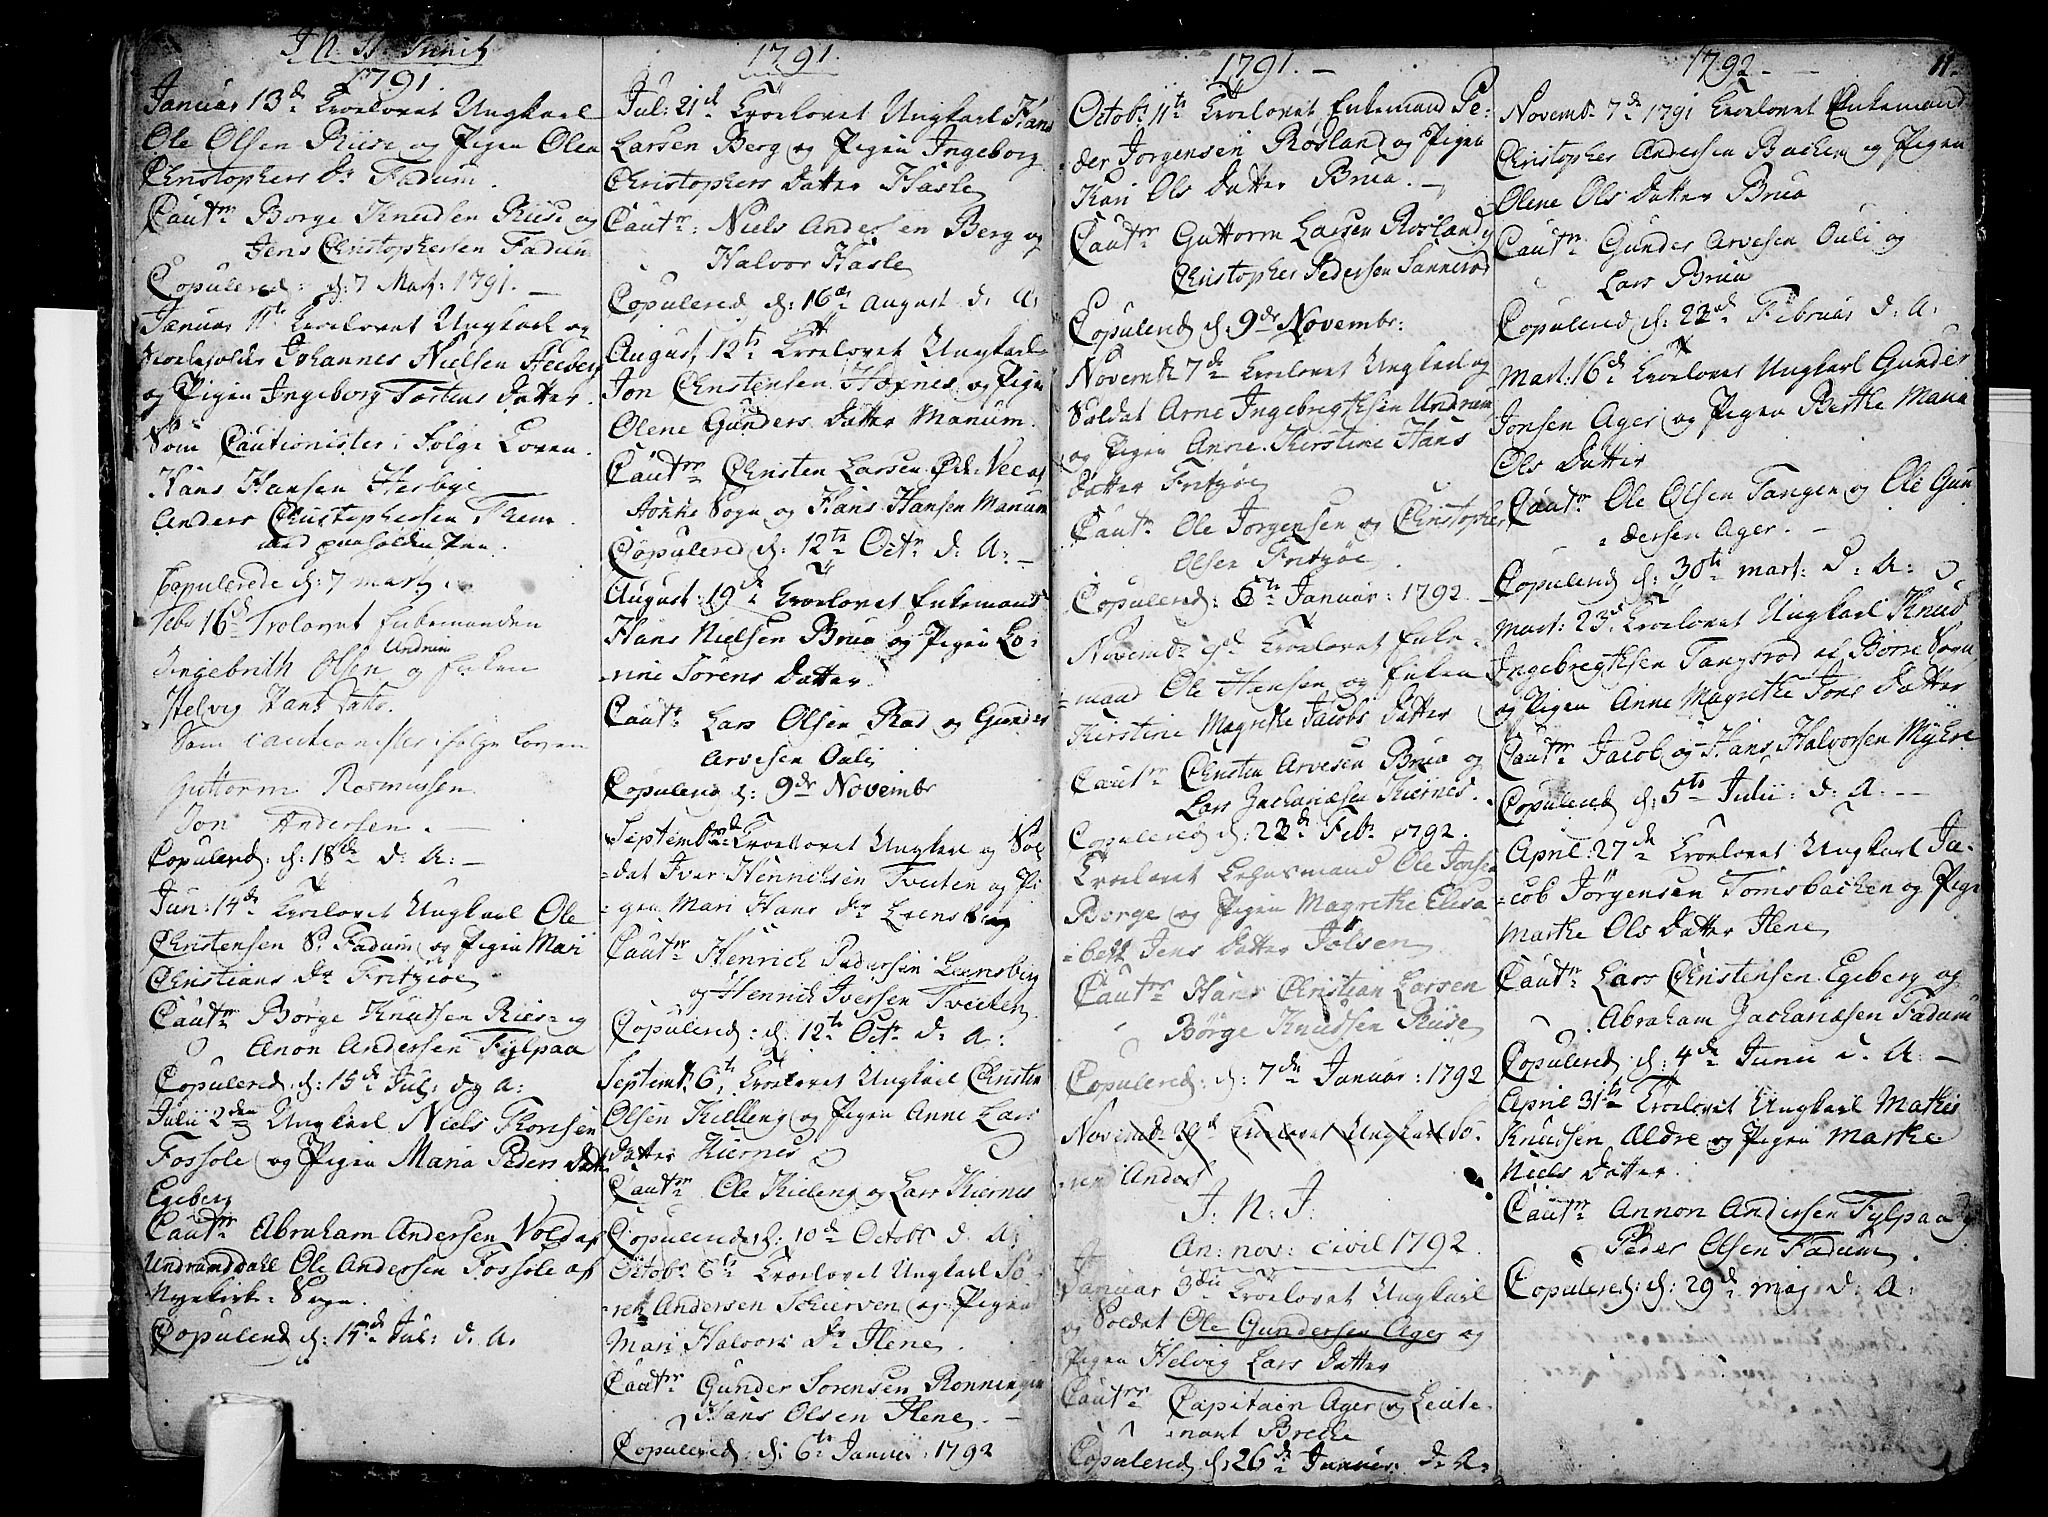 1791.
Januar 13de Troelovet Ungkarl
Ole Olsen Riise og Pigen Olea
Christophers Dr Fadum.
Cautrr Borge Knudsen Riise og
Jens Christophersen Fadum
Copulered: d: 7 Mart: 1791. —
Januar 11te Troelovet Ungkarl og
Johannes Nielsen
og Pigen Ingeborg Torstens Datter.
Som Cautionister i Følge Loven
Hans Hansen Herbye
Anders Christophersen Them
med paaholden Pen.
Copulerede d: 7 Martz.
Febr 16d Trolovet Enkemanden
Undrum
Ingebrith Olsen og Enken
Helvig Hans Datr.
Som Cautionister i følge Loven
Guttorm Rasmussen
Jon Andersen. —
Copulered: d: 18de d: A: —
Jun: 14de Troelovet Ungkarl Ole
Christensen S. Fadum og Pigen Mari
Christians Dr Fritzøe
Cautrr Børge Knudsen Riise og
Anon Andersen Fylpaa
Copulered: d: 15de Jul: d: A:
Julii 2den Ungkarl Niels Thorsen
Fossole og Pigen Maria Peders Datr
Egeberg
Cautrr Abraham Andersen Vold af
Undrumsdall Ole Andersen Fossole af
Nyekirke Sogn.
Copulered d: 15de Jul: d: A.
1791.
Jul: 21d Troelovet Ungkarl Hans
Larsen Berg og Pigen Ingeborg
Christophers Datter Hasle
Cautrr: Niels Andersen Berg og
Halvor Hasle
Copulered d: 16de August d: A:
August 12te Troelovet Ungkarl
Jon Christensen Hoxnes og Pigen
Olene Gunders Datter Manum.
Cautrr Christen Larsen Vee af
Sogn og Hans Hansen Manum
Copulered d: 12te Octr d: A: —
August: 19de Troelovet Enkemand
Hans Nielsen Brua og Pigen Lo-
-nine Sørens Datter.
Cautr Lars Olsen Rad og Gunder
Arvesen Ouli
Copulered d: 9de Novembr
Septembr Troelovet Ungkarl og Sol
-dat Iver Henrichsen Tveiten og Pi
-gen Mari Hans Dr Leensberg
Cautrr Henrich Pedersen Leensberg
og Henrich Iversen Tveiten
Copulered: d: 12te Octr d: A:
Septemb 6te Troelovet Ungkarl Christen
Olsen Kielleng og Pigen Anne Lars
Datter Kiernes
Cautrr Ole Kieleng og Lars Kiernes
Copulered d: 10de Octobr d: A:
Octobr 6te Troelovet Ungkarl So-
-ren Andersen Schierven og Pigen
Mari Halvors Dr Ilene.
Cautrr Gunder Sorensen Ronningen
Hans Olsen Ilene. —
Copulered d: 6te Januar: 1792
1791. —
Octobr 11te Troelovet Enkemand Pe-
der Jorgensen Rosland og Pigen
Kari Ols Datter Brua. —
Cautrr Guttorm Larsen Rosland og
Christopher Pedersen Sannerød
Copulered d 9de Novembr:
Novembr 7de Troelovet Ungkarl og
Soldat Arne Ingebregthsen Undrum
og Pigen Anne Kirstine Hans
Datter Fritzøe
Cautrr Ole Jorgensen og Christopher
Olsen Fritzøe.
Copulered: 6te Januar: 1792.
Novembr Troelovet Enke-
-mand Ole Hansen og Enken
Kirstine Magrethe Jacobs Datter
Cautrr Christen Arvesen Brua og
Lars Zachariæsen Kiernes.
Copulered d: 22de Febr 1792.
Troelovet Lehnsmand Ole Jonsen
Borge og Pigen Magrethe Elisa
-beth Jens Datter Jolsen
Cautrr Hans Christian Larsen
Børge Knudsen Riise
Copulered: d: 7de Januar: 1792
Novembr 29d Troelovet Ungkarl So-
-ren Anders
J: N: J:
An: nov: civil 1792.
Januar 3die Troelovet Ungkarl
og Soldat Ole Gundersen Ager og
Pigen Helvig Lars Datter
Cautrr Capitain Ager og Leute-
-nant
Copulered d: 26de Januar: d: A:
1792. — 11.
Novembr 7de 1791 Troelovet Enkemand
Christopher Andersen Bachen og Pigen
Olene Ols Datter Brua
Cautrr Gunder Arvesen Ouli og
Lars Brua
Copulered d: 22de Februar d: A:
Mart: 16de Troelovet Ungkarl Gunder
Jonsen Ager og Pigen Berthe Maria
Ols Datter
Cautrr Ole Olsen Tangen og Ole Gun
-dersen Ager. —
Copulered d: 30te Mart: d: A:
Mart: 23d Troelovet Ungkarl Knud
Ingebregthsen Tangsrød af Borre Sogn
og Pigen Anne Magrethe Jons Datter
Cautrr Jacob og Hans Halvorsen Myhre
Copulered d: 5te Julii: d: A: —
April: 27de Troelovet Ungkarl Ja-
-cob Jörgensen Tomsbachen og Pigen
Marthe Ols Datter Ilene
Cautrr Lars Christensen Egeberg og
Abraham Zachariæsen Fadum
Copulered: d: 4de Junii d. A: —
April 31te Troelovet Ungkarl Mathis
Knudsen Aldre og Pigen Marthe
Niels Datter.
Cautrr Annon Andersen Fylpaa og
Peder Olsen Fadum.
Copulered: d: 29de Maj d: A: